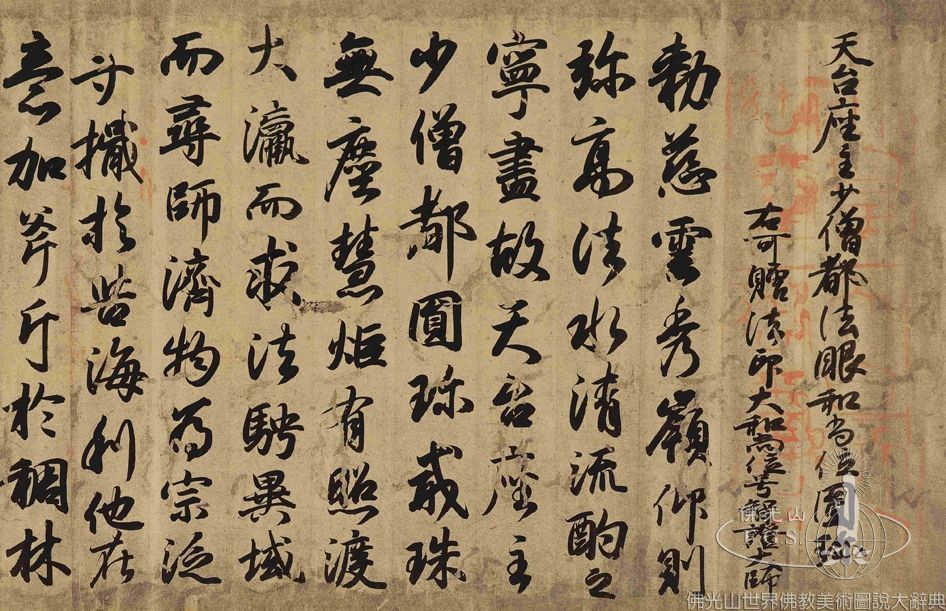 天台座主少僧都法眼和尚位圓珎
右可贈法印大和尚位号智證大師
勅慈雲秀嶺仰則
弥高法水清流酌之
寧盡故天台座主
少僧都圓珎戒珠
無塵慧炬有照渡
大瀛而求法騁異域
而尋師濟物為宗泛
寸檝於苦海利他在
意加斧斤於稠林
佛光山
F.G.S.
佛光山世界佛教美術圖說大辭典